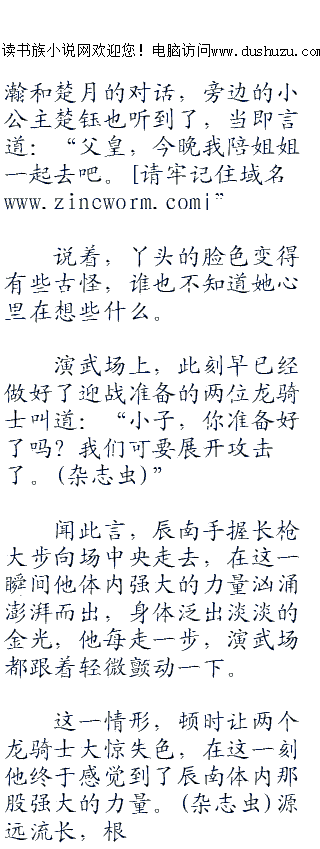 读书族小说网欢迎您！电脑访问www.dushuzu.com
瀚和楚月的对话，旁边的小
公主楚钰也听到了，当即言
道：“父皇，今晚我陪姐姐
一起去吧。[请牢记住域名
www.zincworm.com|”
说着，丫头的脸色变得
有些古怪，谁也不知道她心
里在想些什么。
演武场上，此刻早已经
做好了迎战准备的两位龙骑
士叫道：“小子，你准备好
了吗？我们可要展开攻击
了。(杂志虫)”
闻此言，辰南手握长枪
大步向场中央走去，在这一
瞬间他体内强大的力量汹涌
澎湃而出，身体泛出淡淡的
金光，他每走一步，演武场
都跟着轻微颤动一下。
这一情形，顿时让两个
龙骑士大惊失色，在这一刻
他终于感觉到了辰南体内那
股强大的力量。(杂志虫)源
远流长，根